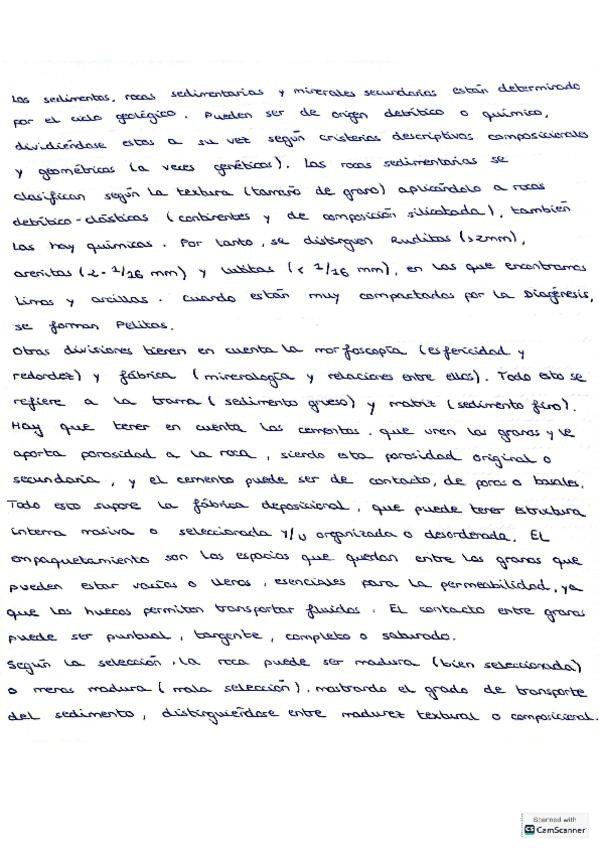 Los sedimentos, rocas sedimentarias y minerales secundarios están determinado
por el ciclo geológico. Pueden ser de origen detrítico o químico,
dividiéndose estos a su vez según cristerios descriptivos composicionales
y geométricos (a veces genéticos). Las rocas sedimentarias se
clasifican según la textura (tamaño de grano) aplicándolo a rocas
detrítico-clásticas (continentes y de composición silicatada), también
las hay químicas. Por tanto, se distinguen Ruditas (>2mm),
arenitas (2-1/16 mm) y lutitas (< 1/16 mm), en las que encontramos
limos y arcillas. Cuando están muy compactadas por la Diagénesis,
se forman Pelitas.
Otras divisiones tienen en cuenta la morfoscopía (esfericidad y
redondez) y fábrica (mineralogía y relaciones entre ellos). Todo esto se
refiere a la trama (sedimento grueso) y matriz (sedimento fino).
Hay que tener en cuenta los cementos. que unen los granos y le
aporta porosidad a la roca, siendo esta porosidad original o
secundaria, y el cemento puede ser de contacto, de poros o basales.
Todo esto supone la fábrica deposicional, que puede tener estructura
interna masiva o seleccionada y/u organizada o desordenada. El
empaquetamiento son los espacios que quedan entre los granos que
pueden estar vacíos o llenos, esenciales para la permeabilidad, ya
que los huecos permiten transportar fluidos. El contacto entre granos
puede ser puntual, tangente, completo o saturado.
Según la selección, la roca puede ser madura (bien seleccionada)
o menos madura (mala selección), mostrando el grado de transporte
del sedimento, distinguiéndose entre madurez textural o composicional.
Scanned with
CamScanner